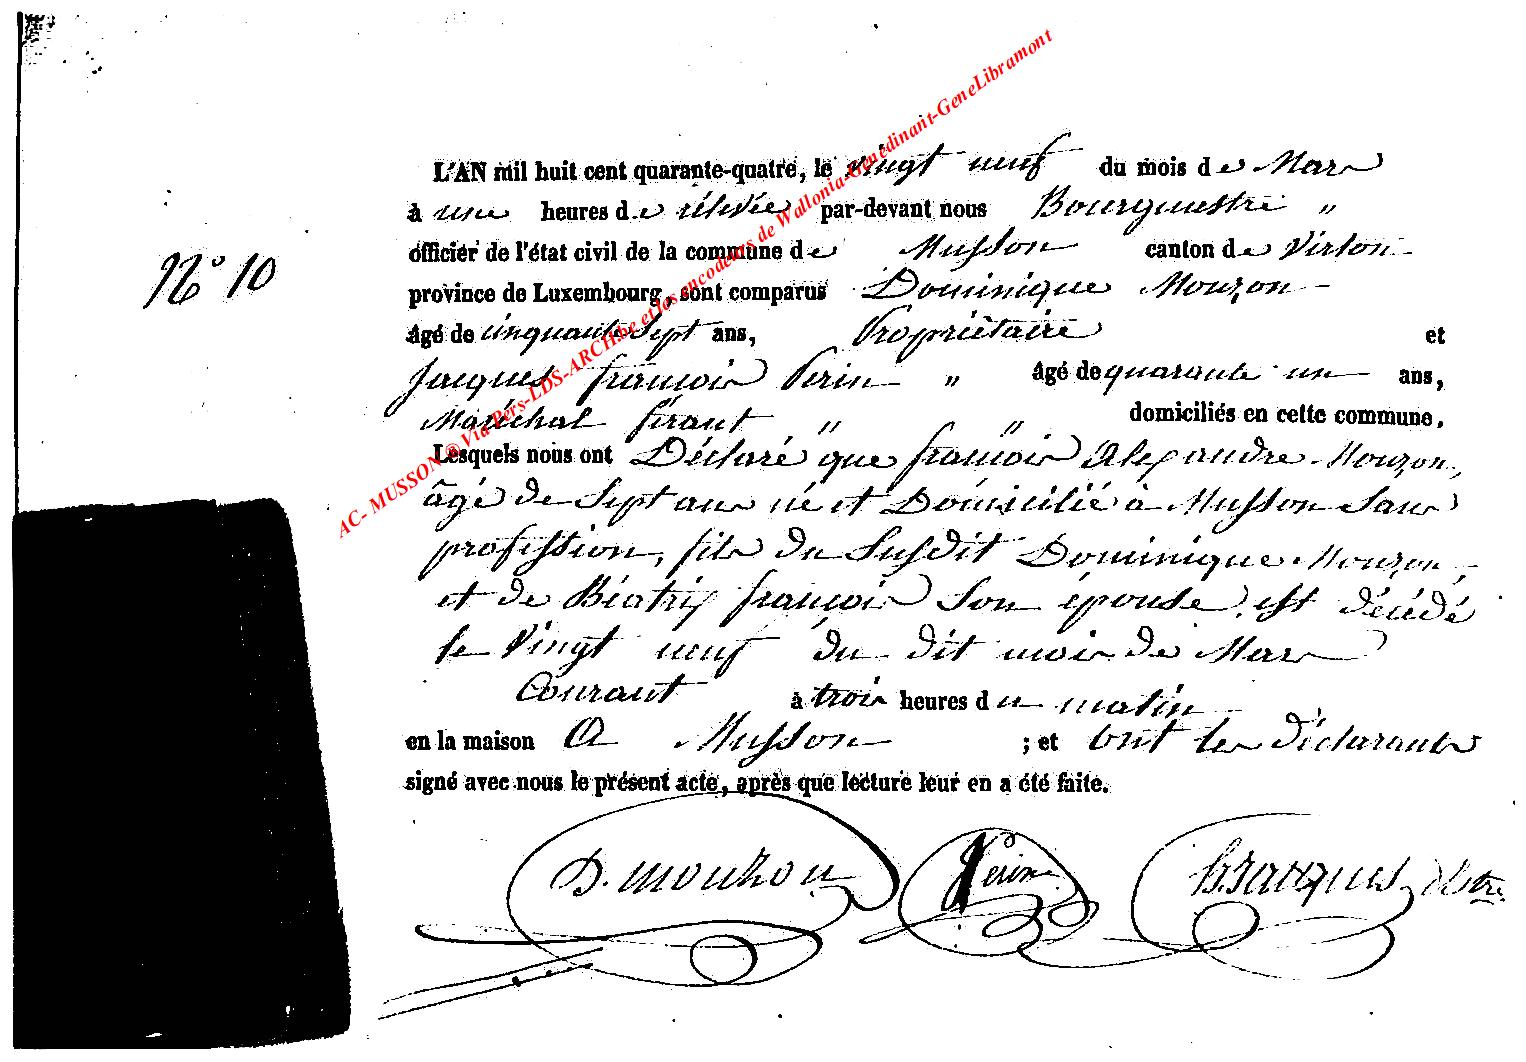 L'AN mil huit cent quarante-quatre, le vingt neuf du mois de Mars
à une heures de rélévée par-devant nous Bourguestre "
officier de l'état civil de la commune de Musson canton de Virton
N° 10
province de Luxembourg, sont comparus Dominique Mouzon
âgé de cinquante Sept ans, Propriétaire et
Jacques françois Perin " âgé de quarante un ans,
Maréchal férant " " domiciliés en cette commune.
Lesquels nous ont Déclaré que françois Alexandre Mouzon,
âgé de Sept ans né et Domicilié à Musson Sans
profession, fils du Susdit Dominique Mouzon,
et de Béatrix françois Son épouse, est décédé
le Vingt neuf du dit mois de Mars
Courant à trois heures du matin
en la maison A Musson ; et Ont les déclarants
signé avec nous le présent acte, après que lecture leur en a été faite.
D. Mouzon Perin Jacques
AC- MUSSON @ Via Pers-LDS-ARCH.be et les encodeurs de Wallonia-Genedinant-GeneLibramont